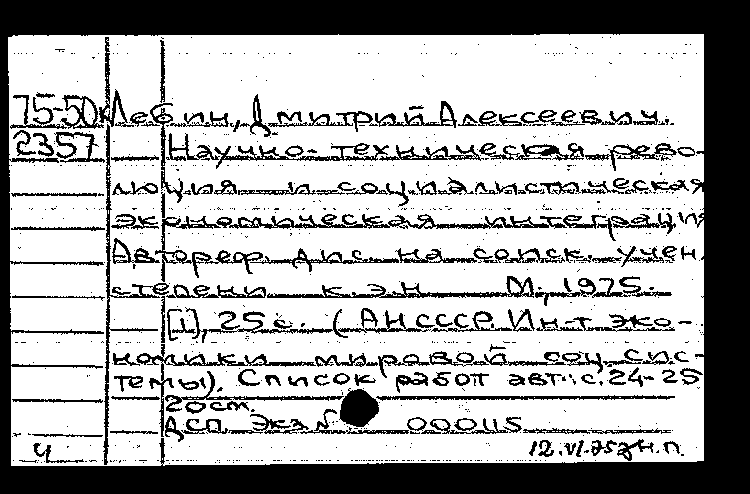 75-50к Лебин, Дмитрий Алексеевич.
2357 Научно-техническая рево-
люция и социалистическая
экономическая интеграция
Автореф. дис. на соиск. учен.
степени к.э.н М., 1975.
[1], 25 с. (АН СССР. Ин-т эко-
номики мировой соц. сис-
темы). Список работ авт.: с. 24-25
20 см.
ДСП. Экз № 000115
ч 12.VI.75 н.п.